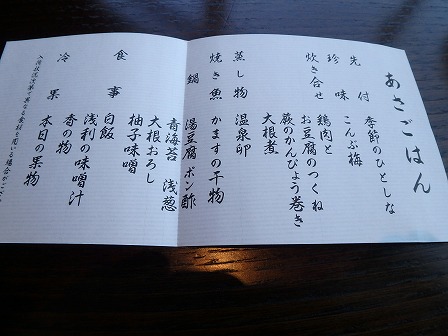 あさごはん
先付 季節のひとしな
珍味 こんぶ梅
炊き合せ 鶏肉と
お豆腐のつくね
蕨のかんぴょう巻き
大根煮
蒸し物 温泉卵
焼き魚 かますの干物
鍋 湯豆腐 ポン酢
青海苔 浅葱
大根おろし
柚子味噌
食事 白飯
浅利の味噌汁
香の物
冷果 本日の果物